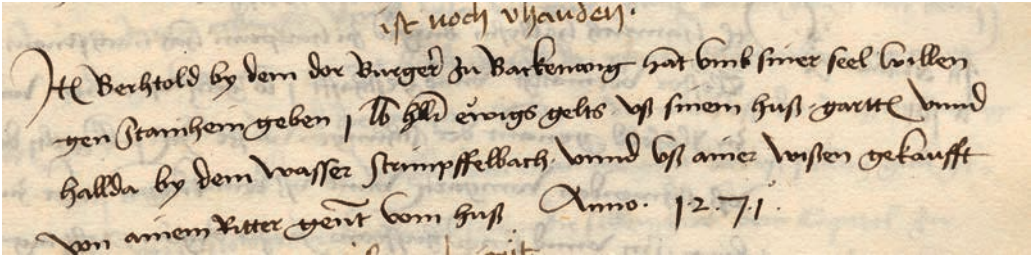 ist noch vhanden.
Itē Berhtold by dem dor Burger zu Backenang hat vmb siner seel willen
gen Stainhein geben 1 lb hllr ewigs gelts vß sinem huß gartte vnnd
hallda by dem wasser Strimpffelbach. vnnd vß ainer wisen gekaufft
von ainem Ritter gent vom huß Anno. 1.2.7.1.